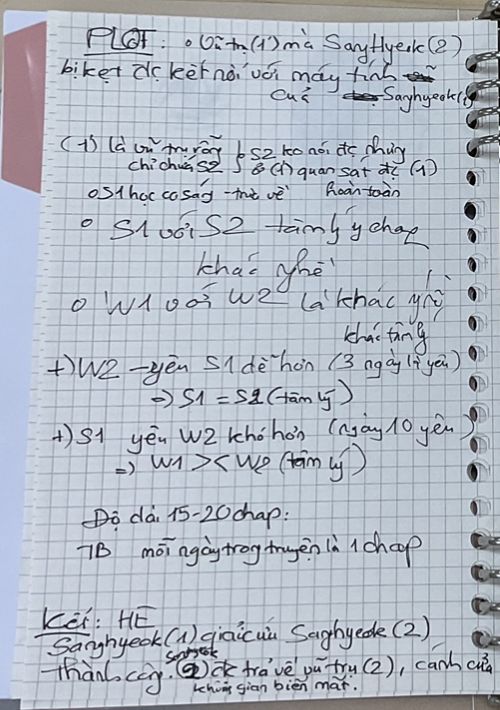 PLOT: o Vũ trụ (1) mà SangHyeok (2)
bị kẹt đc kết nối với máy tính
của Sanghyeok (1)
(1) là vũ trụ rỗng } S2 ko nói đc nhưng
chỉ chứa S2 ở (1) quan sát đc (1)
o S1 học cơ sáng - trừ về hoàn toàn
o S1 với S2 tâm lý y chap
khác nghề
o W1 với W2 là khác
khác tâm lý
+) W2 yêu S1 dễ hơn (3 ngày là yêu)
=> S1 = S2 (tâm lý)
+) S1 yêu W2 khó hơn (ngày 10 yêu)
=> W1 >< W2 (tâm lý)
Độ dài 15-20 chap:
TB mỗi ngày trog truyện là 1 chap
Kết: HE
Sanghyeok (1) giải cứu Saghyeok (2)
thành công. Sanhyeok (2) đc trả về vũ trụ (2), cánh cửa
không gian biến mất.